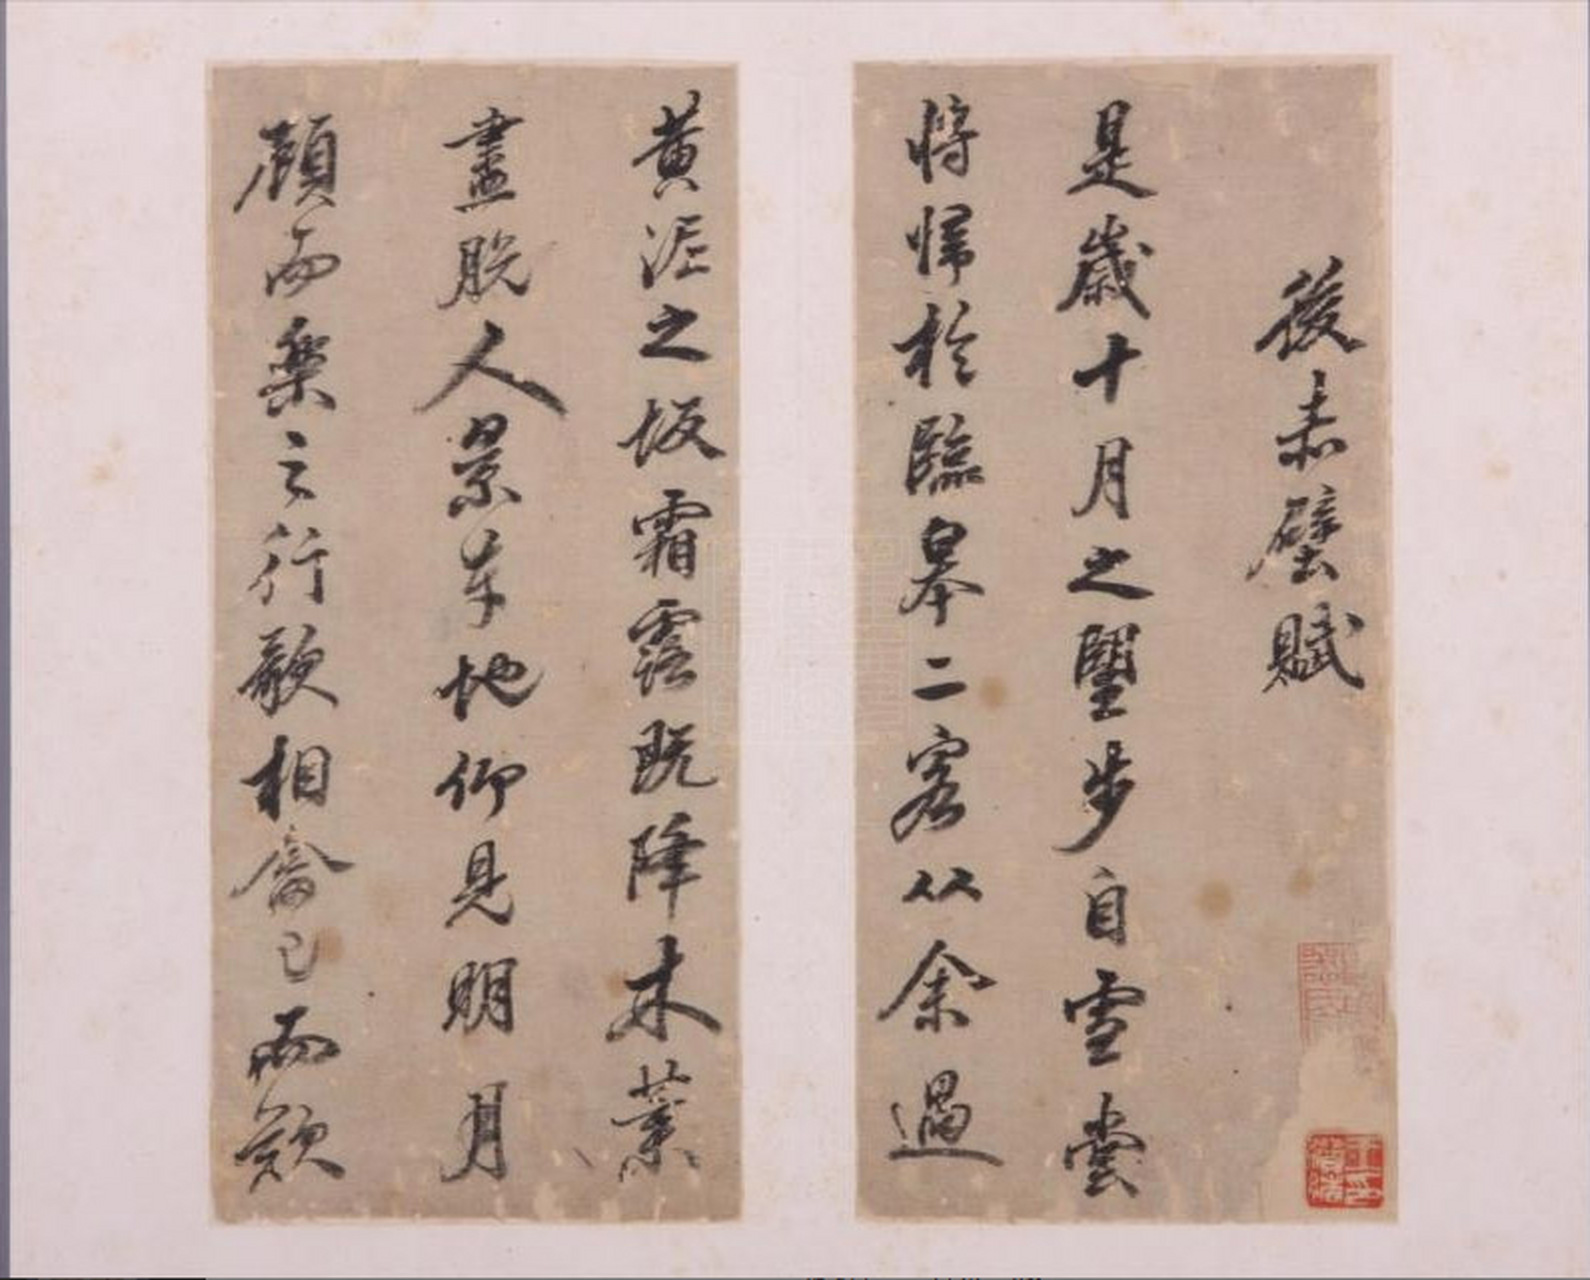 後赤壁賦
是歲十月之望步自雪堂
將歸於臨皋二客從余過
黃泥之坂霜露既降木葉
盡脫人景在地仰見明月
顧而樂之行歌相答已而歎